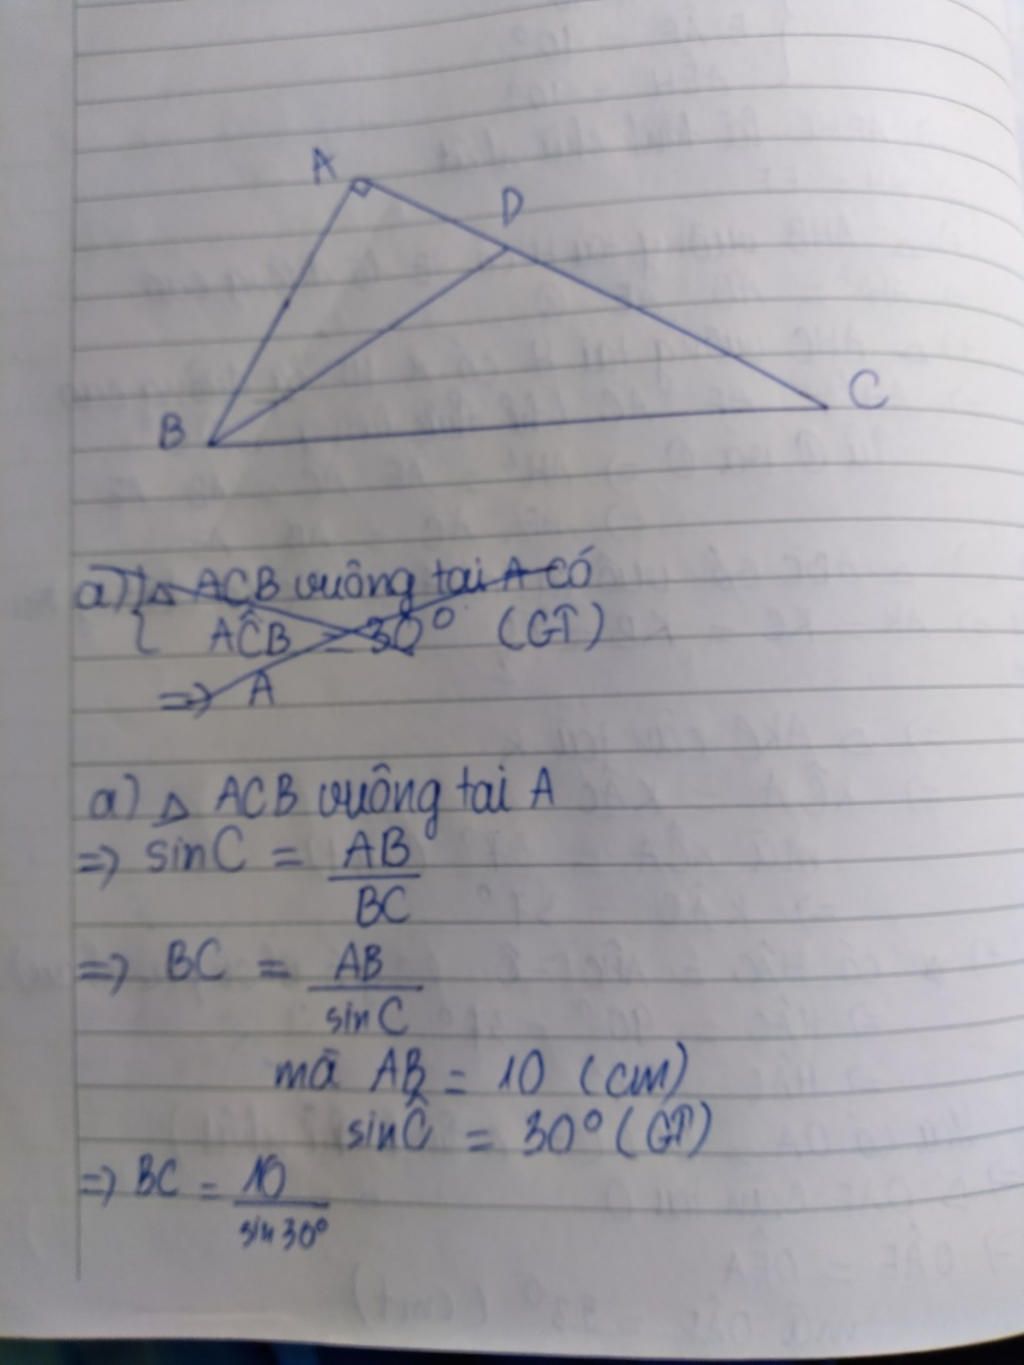 A
D
B
C
a) { Δ ACB vuông tại A có
AĈB = 30° (GT)
=> A
a) Δ ACB vuông tại A
=> sinC = AB
BC
=> BC = AB
sinC
mà AB = 10 (cm)
sinĈ = 30° (GT)
=> BC = 10
sin30°